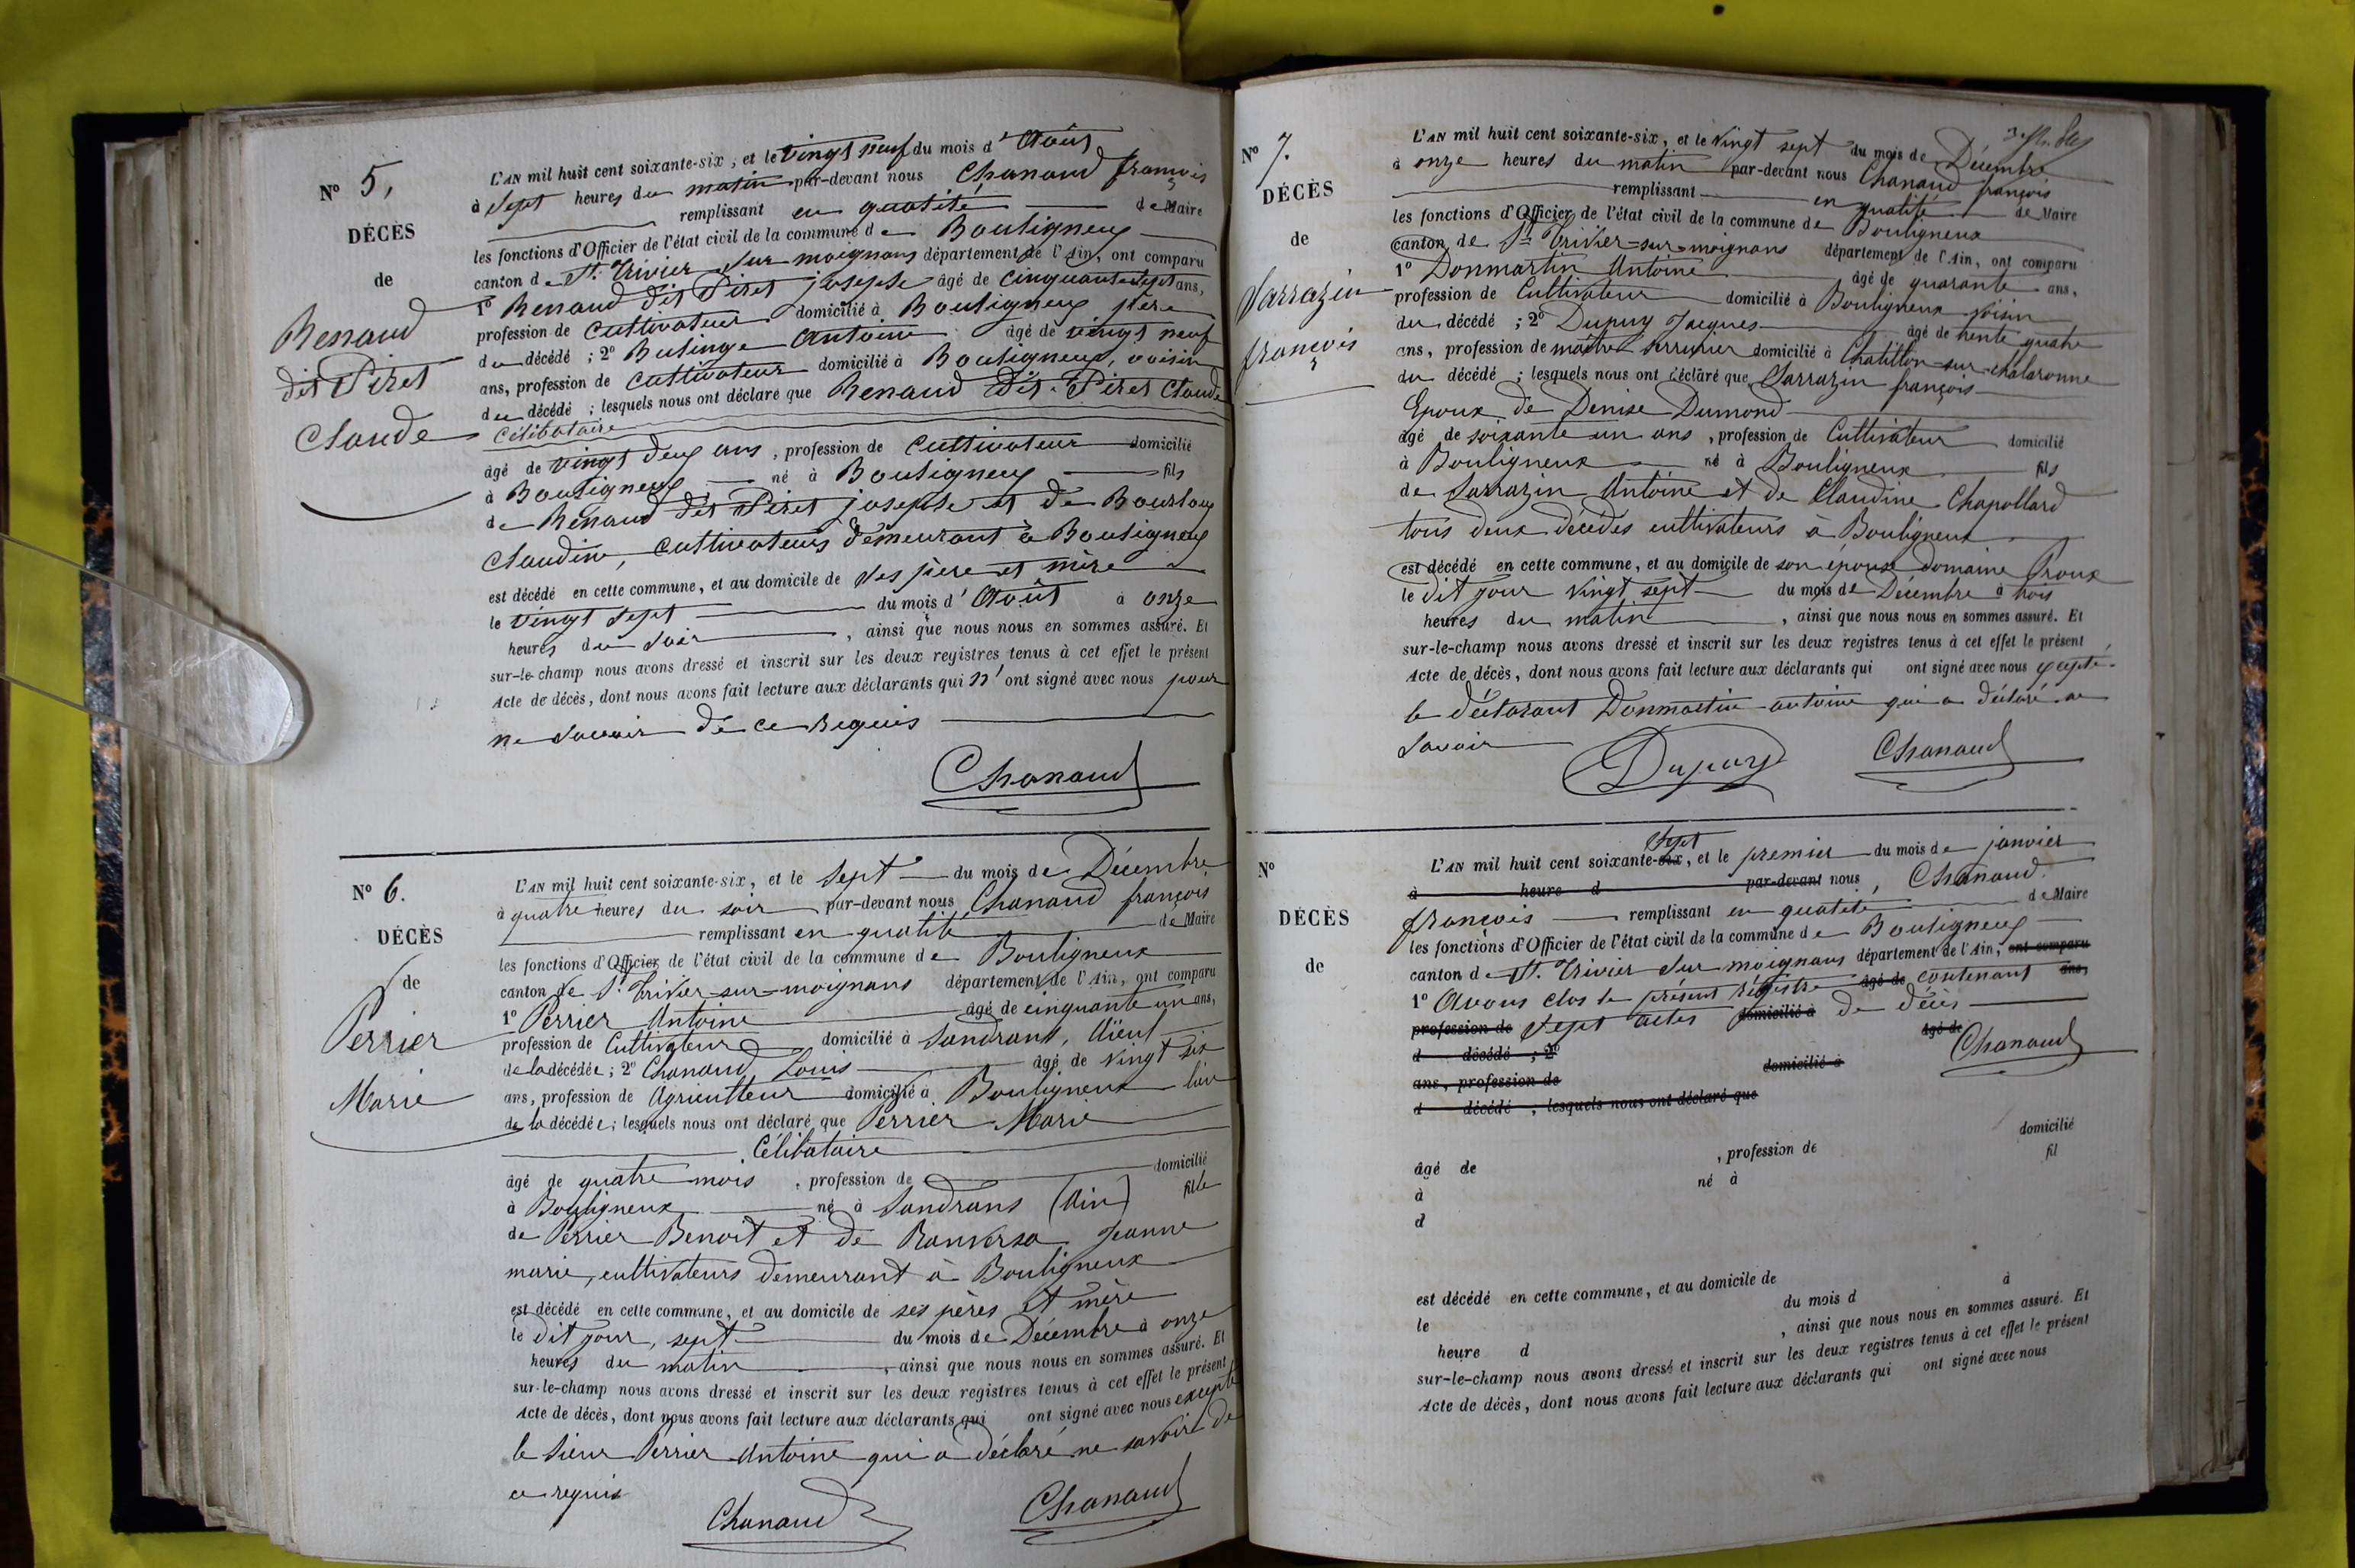 N° 5,
DÉCÈS
de
Renaud
dit Piret
Claude
L'AN mil huit cent soixante-six, et le vingt neuf du mois d'Août
à sept heures du matin par-devant nous Chanaud françois
remplissant en qualité de Maire
les fonctions d'Officier de l'état civil de la commune de Bouligneux
canton de St. Trivier sur moignans département de l'Ain, ont comparu
1° Renaud dit Piret joseph âgé de cinquante sept ans,
profession de cultivateur domicilié à Bouligneux père
du décédé ; 2° Antoine âgé de vingt neuf
ans, profession de cultivateur domicilié à Bouligneux, voisin
du décédé ; lesquels nous ont déclaré que Renaud dit Piret Claude
Célibataire
âgé de vingt deux ans, profession de cultivateur domicilié
à Bouligneux né à Bouligneux fils
de Renaud dit Piret joseph et de
Claudine, cultivateurs demeurant à Bouligneux
est décédé en cette commune, et au domicile de ses père et mère
le vingt sept du mois d'Août à onze
heures du soir, ainsi que nous nous en sommes assuré. Et
sur-le-champ nous avons dressé et inscrit sur les deux registres tenus à cet effet le présent
Acte de décès, dont nous avons fait lecture aux déclarants qui n'ont signé avec nous pour
ne savoir de ce requis
Chanaud
N° 6.
DÉCÈS
de
Perrier
Marie
L'AN mil huit cent soixante-six, et le sept du mois de Décembre
à quatre heures du soir par-devant nous Chanaud françois
remplissant en qualité de Maire
les fonctions d'Officier de l'état civil de la commune de Bouligneux
canton de St. Trivier-sur-moignans département de l'Ain, ont comparu
1° Perrier Antoine âgé de cinquante un ans,
profession de Cultivateur domicilié à Sandrans, Aïeul
de la décédée ; 2° Chanaud Louis âgé de vingt six
ans, profession de Agriculteur domicilié à Bouligneux
de la décédée ; lesquels nous ont déclaré que Perrier Marie
Célibataire
âgé de quatre mois, profession de domicilié
à Bouligneux né à Sandrans (Ain) fille
de Perrier Benoit et de Ranversa Jeanne
marie, cultivateurs demeurant à Bouligneux
est décédé en cette commune, et au domicile de ses pères et mère
le dit jour, sept du mois de Décembre à onze
heures du matin, ainsi que nous nous en sommes assuré. Et
sur-le-champ nous avons dressé et inscrit sur les deux registres tenus à cet effet le présent
Acte de décès, dont nous avons fait lecture aux déclarants qui ont signé avec nous excepté
le sieur Perrier Antoine qui a déclaré ne savoir de
ce requis
Chanaud Chanaud
N° 7.
DÉCÈS
de
Sarrazin
françois
L'AN mil huit cent soixante-six, et le vingt sept du mois de Décembre
à onze heures du matin par-devant nous Chanaud françois
remplissant en qualité de Maire
les fonctions d'Officier de l'état civil de la commune de Bouligneux
canton de St. Trivier-sur-moignans département de l'Ain, ont comparu
1° Donmartin Antoine âgé de quarante ans,
profession de Cultivateur domicilié à Bouligneux voisin
du décédé ; 2° Dupuy Jacques âgé de trente quatre
ans, profession de maître serrurier domicilié à Chatillon-sur-chalaronne
du décédé ; lesquels nous ont déclaré que Sarrazin françois
Epoux de Denise Dumond
âgé de soixante un ans, profession de Cultivateur domicilié
à Bouligneux né à Bouligneux fils
de Sarrazin Antoine et de Claudine Chapollard
tous deux décédés cultivateurs à Bouligneux
est décédé en cette commune, et au domicile de son épouse domaine Proux
le dit jour vingt sept du mois de Décembre à trois
heures du matin, ainsi que nous nous en sommes assuré. Et
sur-le-champ nous avons dressé et inscrit sur les deux registres tenus à cet effet le présent
Acte de décès, dont nous avons fait lecture aux déclarants qui ont signé avec nous excepté
le déclarant Donmartin antoine qui a déclaré ne
savoir
Dupuy Chanaud
N°
DÉCÈS
de
sept
L'AN mil huit cent soixante-six, et le premier du mois de janvier
à heure d par-devant nous, Chanaud
françois remplissant en qualité de Maire
les fonctions d'Officier de l'état civil de la commune de Bouligneux
canton de St. Trivier sur moignans département de l'Ain, ont comparu
1° Avons clos le présent régistre âgé de contenant ans,
profession de sept actes domicilié à de décès
d décédé ; 2° âgé de
Chanaud
ans, profession de domicilié à
d décédé ; lesquels nous ont déclaré que
âgé de , profession de domicilié
à né à fil
d
est décédé en cette commune, et au domicile de
le du mois d à
heure d , ainsi que nous nous en sommes assuré. Et
sur-le-champ nous avons dressé et inscrit sur les deux registres tenus à cet effet le présent
Acte de décès, dont nous avons fait lecture aux déclarants qui ont signé avec nous